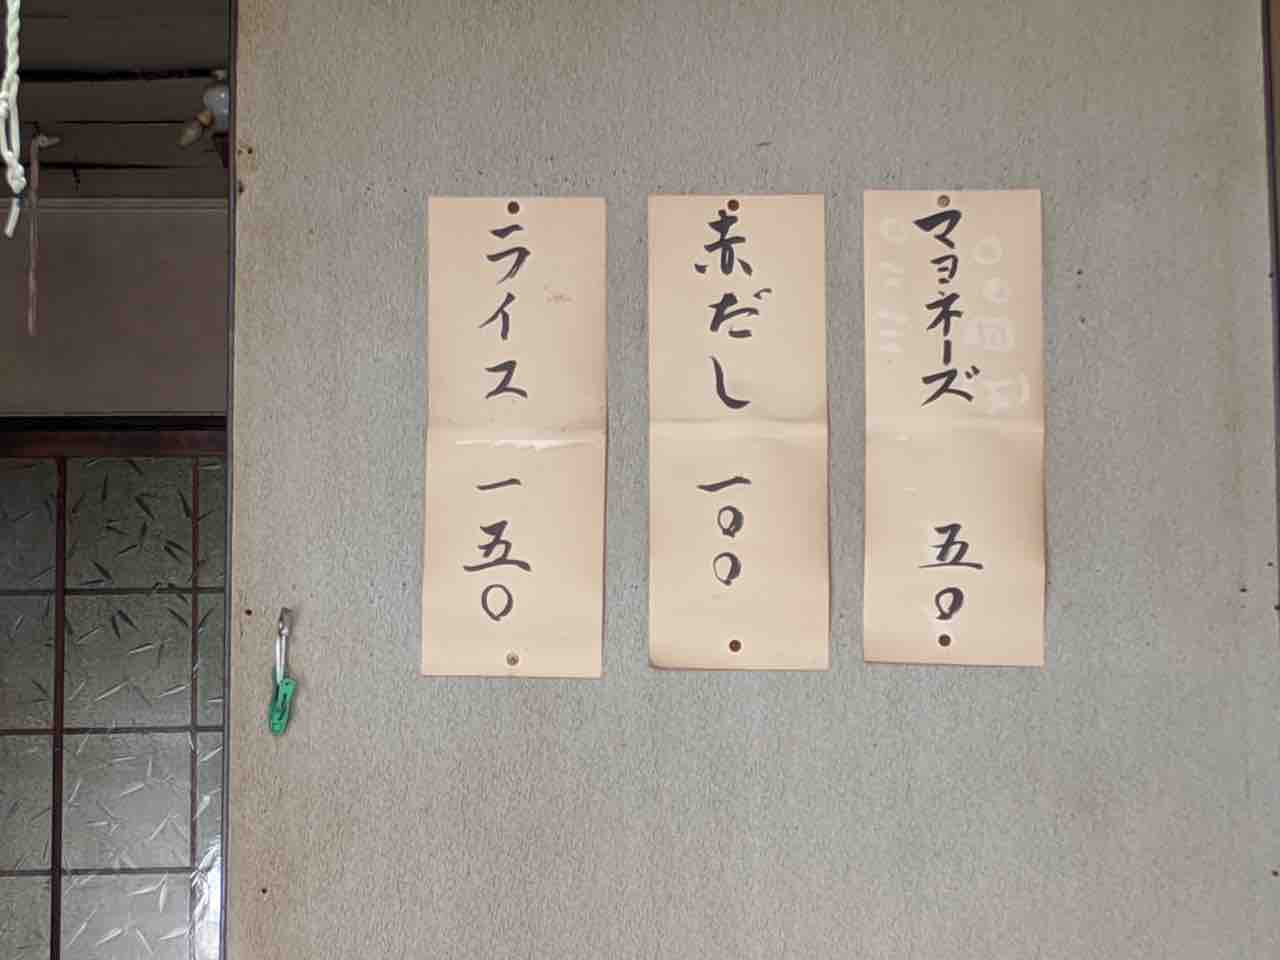 マヨネーズ 五〇
赤だし 一〇〇
ライス 一五〇